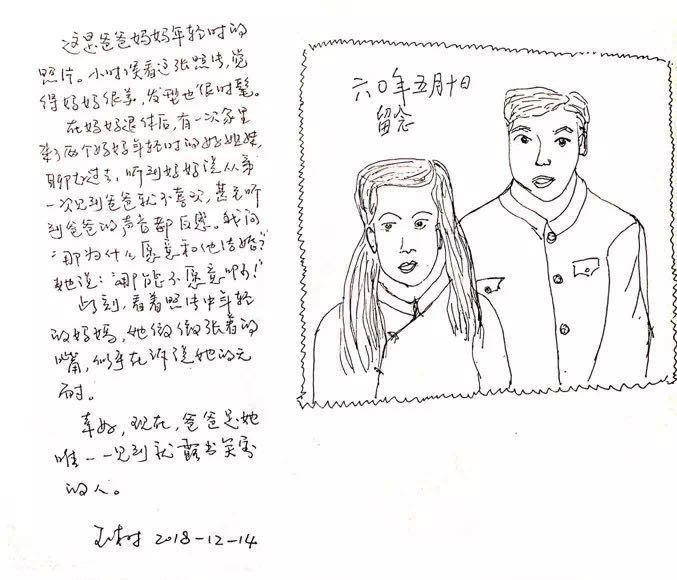 这是爸爸妈妈年轻时的
照片。小时候看这张照片,觉
得妈妈很美,发型也很时髦。
在妈妈退休后,有一次家里
来了两个妈妈年轻时的好姐妹,
聊起过去,听到妈妈说从第
一次见到爸爸就不喜欢,甚至听
到爸爸的声音都反感。我问
“那为什么愿意和他结婚?”
她说:“那能不愿意吗!”
此刻,看着照片中年轻
的妈妈,她微微张着的
嘴,似乎在诉说她的无
耐。
幸好,现在,爸爸是她
唯一一见到就露出笑容
的人。
2018-12-14
六〇年五月十日
留念